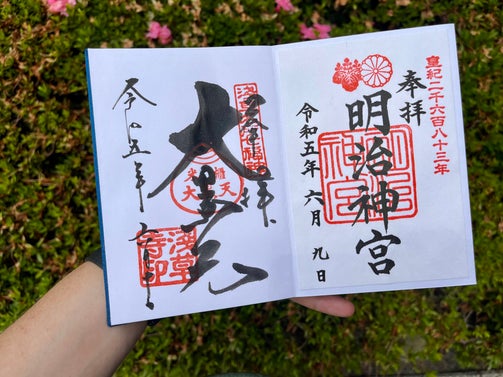 皇紀二千六百八十三年
奉拝
明治神宮
令和五年六月九日
奉拝
大黒天
浅草名所七福神
大黒天
浅草寺印
令和五年